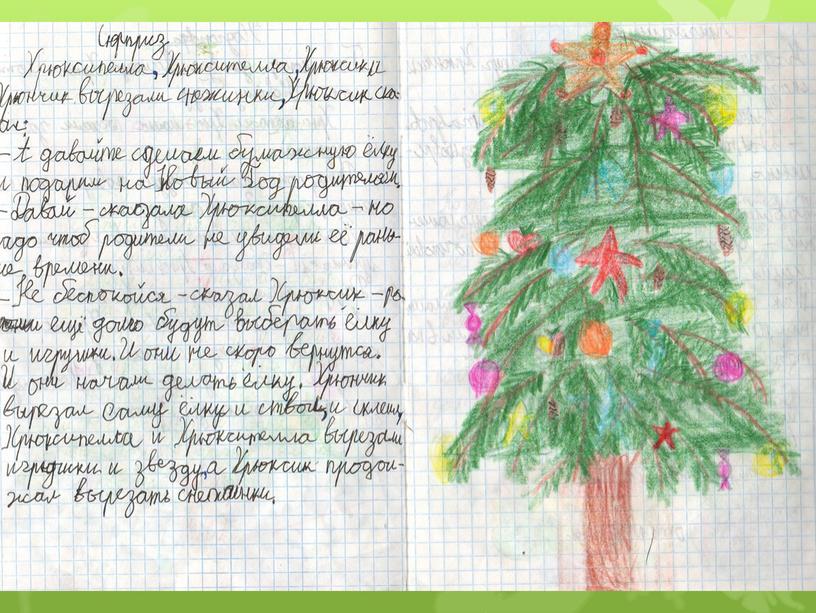 Сюрприз
Хрюксипелла, Хрюкситела, Хрюксик и
Хрюнчик вырезали снежинки, Хрюксик ска-
зал:
- А давайте сделаем бумажную ёлку
и подарим на Новый Год родителям.
- Давай - сказала Хрюкситела - но
надо чтоб родители не увидели её рань-
ше времени.
- Не беспокойся - сказал Хрюксик - ро-
ещё долго будут выберать ёлку
и игрушки. И они не скоро вернутся.
И они начали делать ёлку. Хрюнчик
вырезал саму ёлку и ствол, и склеил,
Хрюксипелла и Хрюкситела вырезали
игрушки и звезду, а Хрюксик продол-
жал вырезать снежинки.